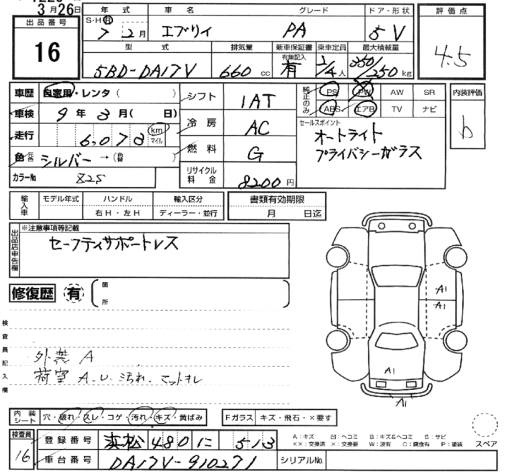 3月26日
出品番号
16
S・H
年式
7 2月
車名
エブリイ
グレード
PA
ドア・形状
5 V
評価点
4.5
型式
5BD-DA17V
排気量
660 cc
新車保証書
有 有無記入
乗車定員
2/4人
最大積載量
350/250 kg
車歴
自家用・レンタ( )
車検
9年3月( 日)
走行
6078 km マイル
色
シルバー→
カラーNo
Z2S
シフト
1AT
冷房
AC
燃料
G
リサイクル料金
8200円
純正品のみ
PS PW AW SR
ABS エアB TV ナビ
セールスポイント
オートライト
プライバシーガラス
内装評価
b
輸入車
モデル年式
ハンドル
右H・左H
輸入区分
ディーラー・並行
書類有効期限
月 日迄
出品店申告欄
※注意事項等記載
セーフティサポートレス
修復歴 有
箇所
検査員記入欄
外装A
荷室A.U.汚れ.
内装シート
穴・破れ・スレ・コゲ・汚れ・キズ・黄ばみ
Fガラス キズ・飛石・×要す
検査員
16
登録番号
浜松 480 に 513
車台番号
DA17V-910271
シリアルNo
A1
A1
A1
A1
A:キズ U:ヘコミ B:キズ&ヘコミ S:サビ
スペア